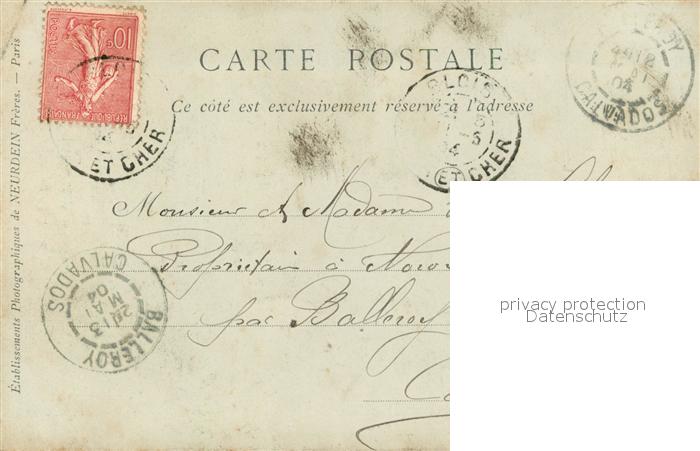 CARTE POSTALE
Ce côté est exclusivement réservé à l'adresse
10c
POSTES
REPUBLIQUE FRANÇAISE
ET CHER
BLOIS
ET CHER
CALVADOS
04
Monsieur & Madame
Propriétaire à
par Balleroy
BALLEROY
CALVADOS
MAI
04
privacy protection
Datenschutz
Établissements Photographiques de NEURDEIN Frères. — Paris